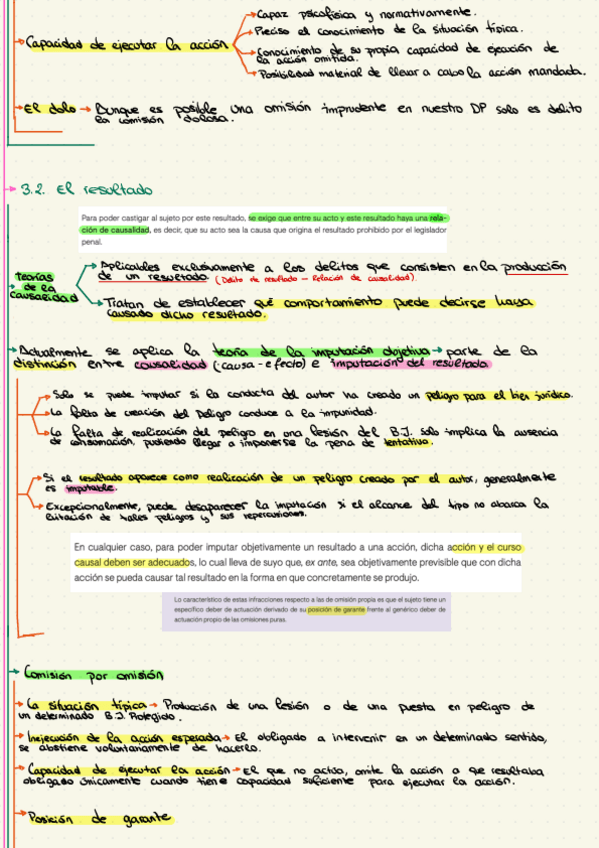 Capaz psicofísica y normativamente.
Preciso el conocimiento de la situación típica.
Capacidad de ejecutar la acción
Conocimiento de su propia capacidad de ejecución de
la acción omitida.
Posibilidad material de llevar a cabo la acción mandada.
El dolo → Aunque es posible una omisión imprudente en nuestro DP solo es delito
la comisión dolosa.
3.2. El resultado
Para poder castigar al sujeto por este resultado, se exige que entre su acto y este resultado haya una rela-
ción de causalidad, es decir, que su acto sea la causa que origina el resultado prohibido por el legislador
penal.
teorías
de la
causalidad
Aplicables exclusivamente a los delitos que consisten en la producción
de un resultado (Delito de resultado - Relación de causalidad).
Tratan de establecer qué comportamiento puede decirse haya
causado dicho resultado.
Actualmente se aplica la teoría de la imputación objetiva → parte de la
distinción entre causalidad (causa-efecto) e imputación del resultado
Solo se puede imputar si la conducta del autor ha creado un peligro para el bien jurídico.
La falta de creación del peligro conduce a la impunidad.
La falta de realización del peligro en una lesión del B.J. solo implica la ausencia
de consumación, pudiendo llegar a imponerse la pena de tentativa.
Si el resultado aparece como realización de un peligro creado por el autor, generalmente
es imputable.
Excepcionalmente, puede desaparecer la imputación si el alcance del tipo no abarca la
evitación de tales peligros y sus repercusiones.
En cualquier caso, para poder imputar objetivamente un resultado a una acción, dicha acción y el curso
causal deben ser adecuados, lo cual lleva de suyo que, ex ante, sea objetivamente previsible que con dicha
acción se pueda causar tal resultado en la forma en que concretamente se produjo.
Lo característico de estas infracciones respecto a las de omisión propia es que el sujeto tiene un
específico deber de actuación derivado de su posición de garante frente al genérico deber de
actuación propio de las omisiones puras.
Comisión por omisión
La situación típica → Producción de una lesión o de una puesta en peligro de
un determinado B.J. Protegido.
Inejecución de la acción esperada → El obligado a intervenir en un determinado sentido,
se abstiene voluntariamente de hacerlo.
Capacidad de ejecutar la acción → El que no actúa, omite la acción a que resultaba
obligado únicamente cuando tiene capacidad suficiente para ejecutar la acción.
Posición de garante